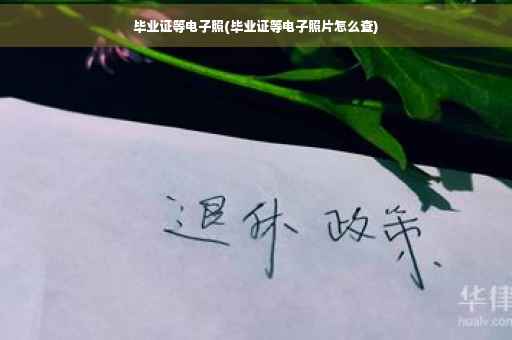 毕业证等电子照(毕业证等电子照片怎么查)
退休 政策
华律
hualv.com